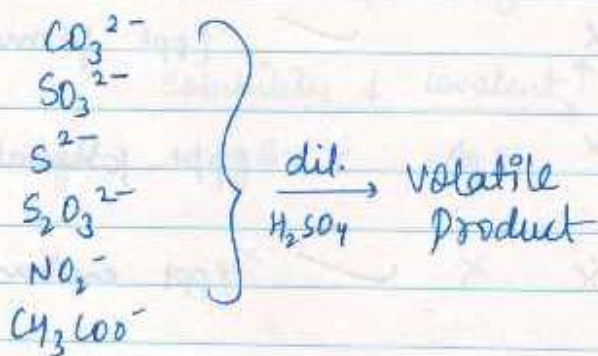 CO₃²⁻
SO₃²⁻
S²⁻
S₂O₃²⁻
NO₂⁻
CH₃COO⁻
dil.
H₂SO₄
volatile
product